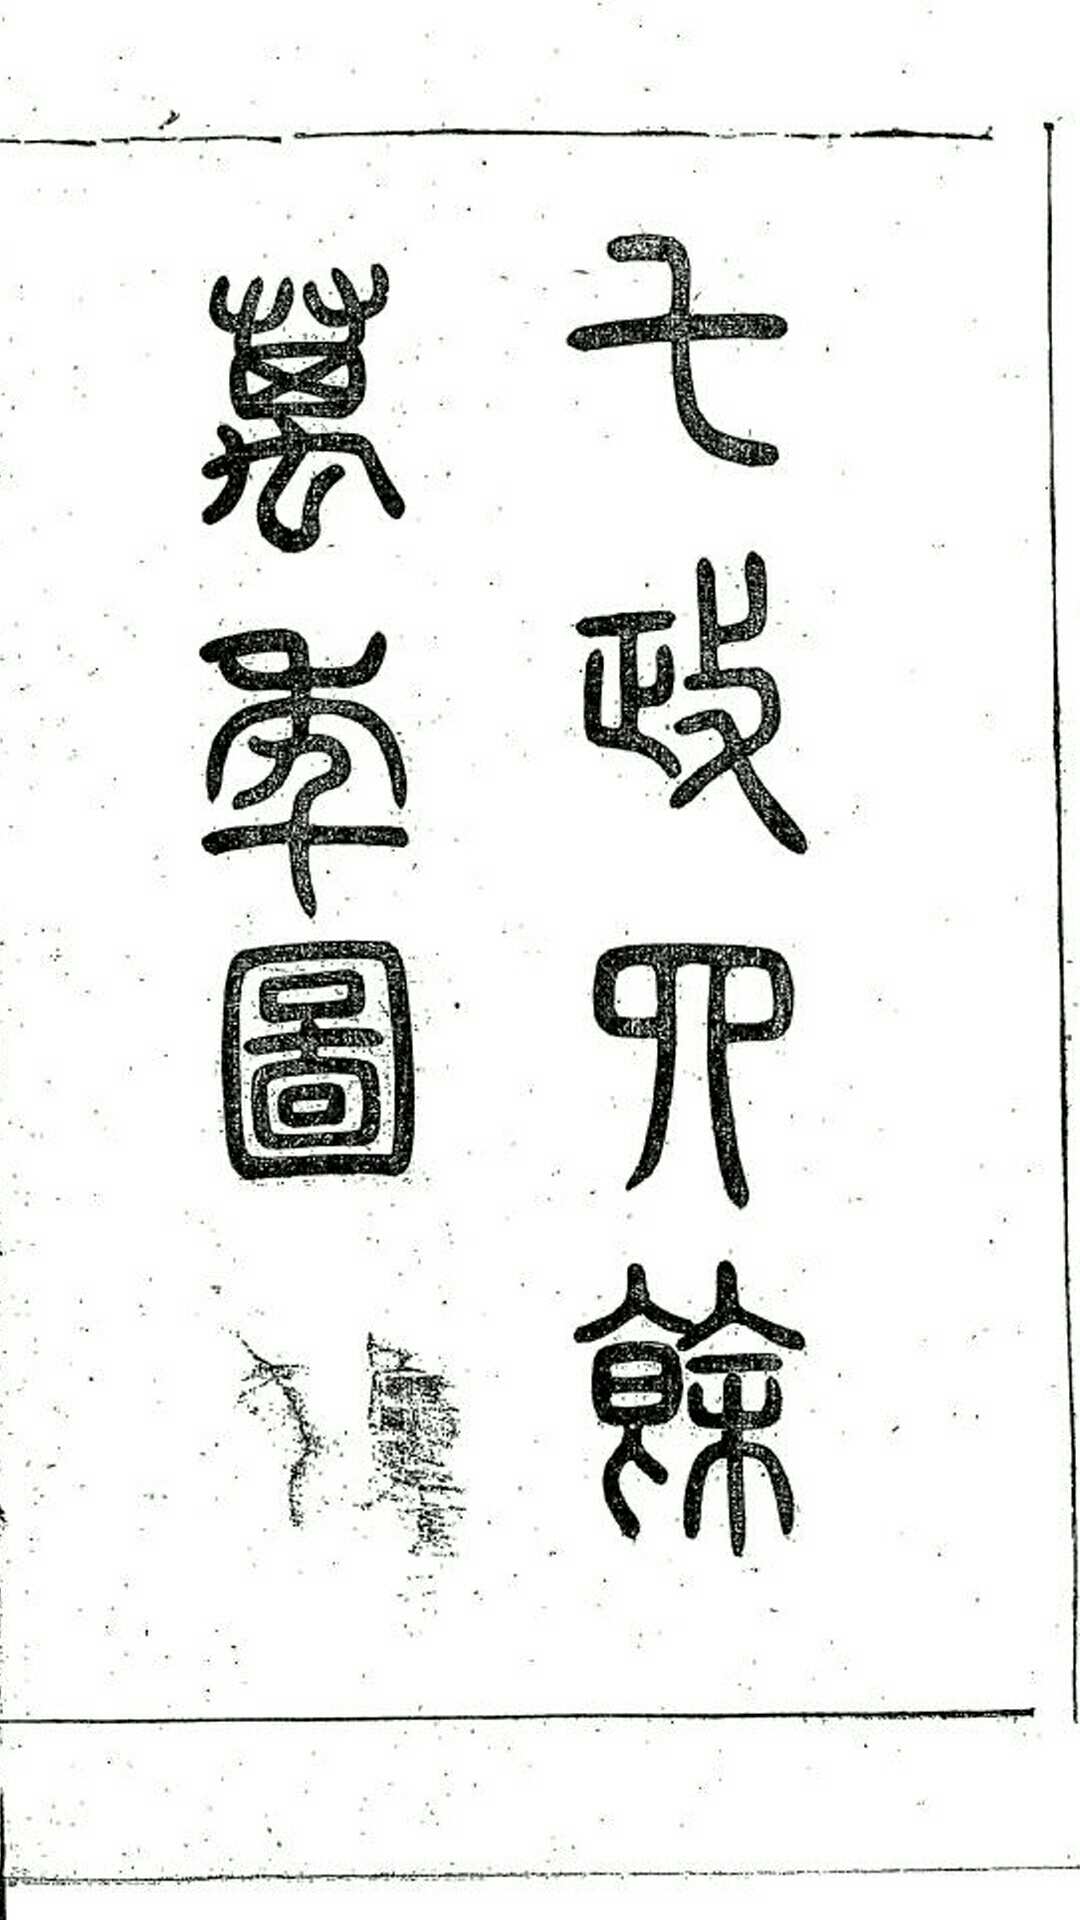 七政四餘
萬年圖